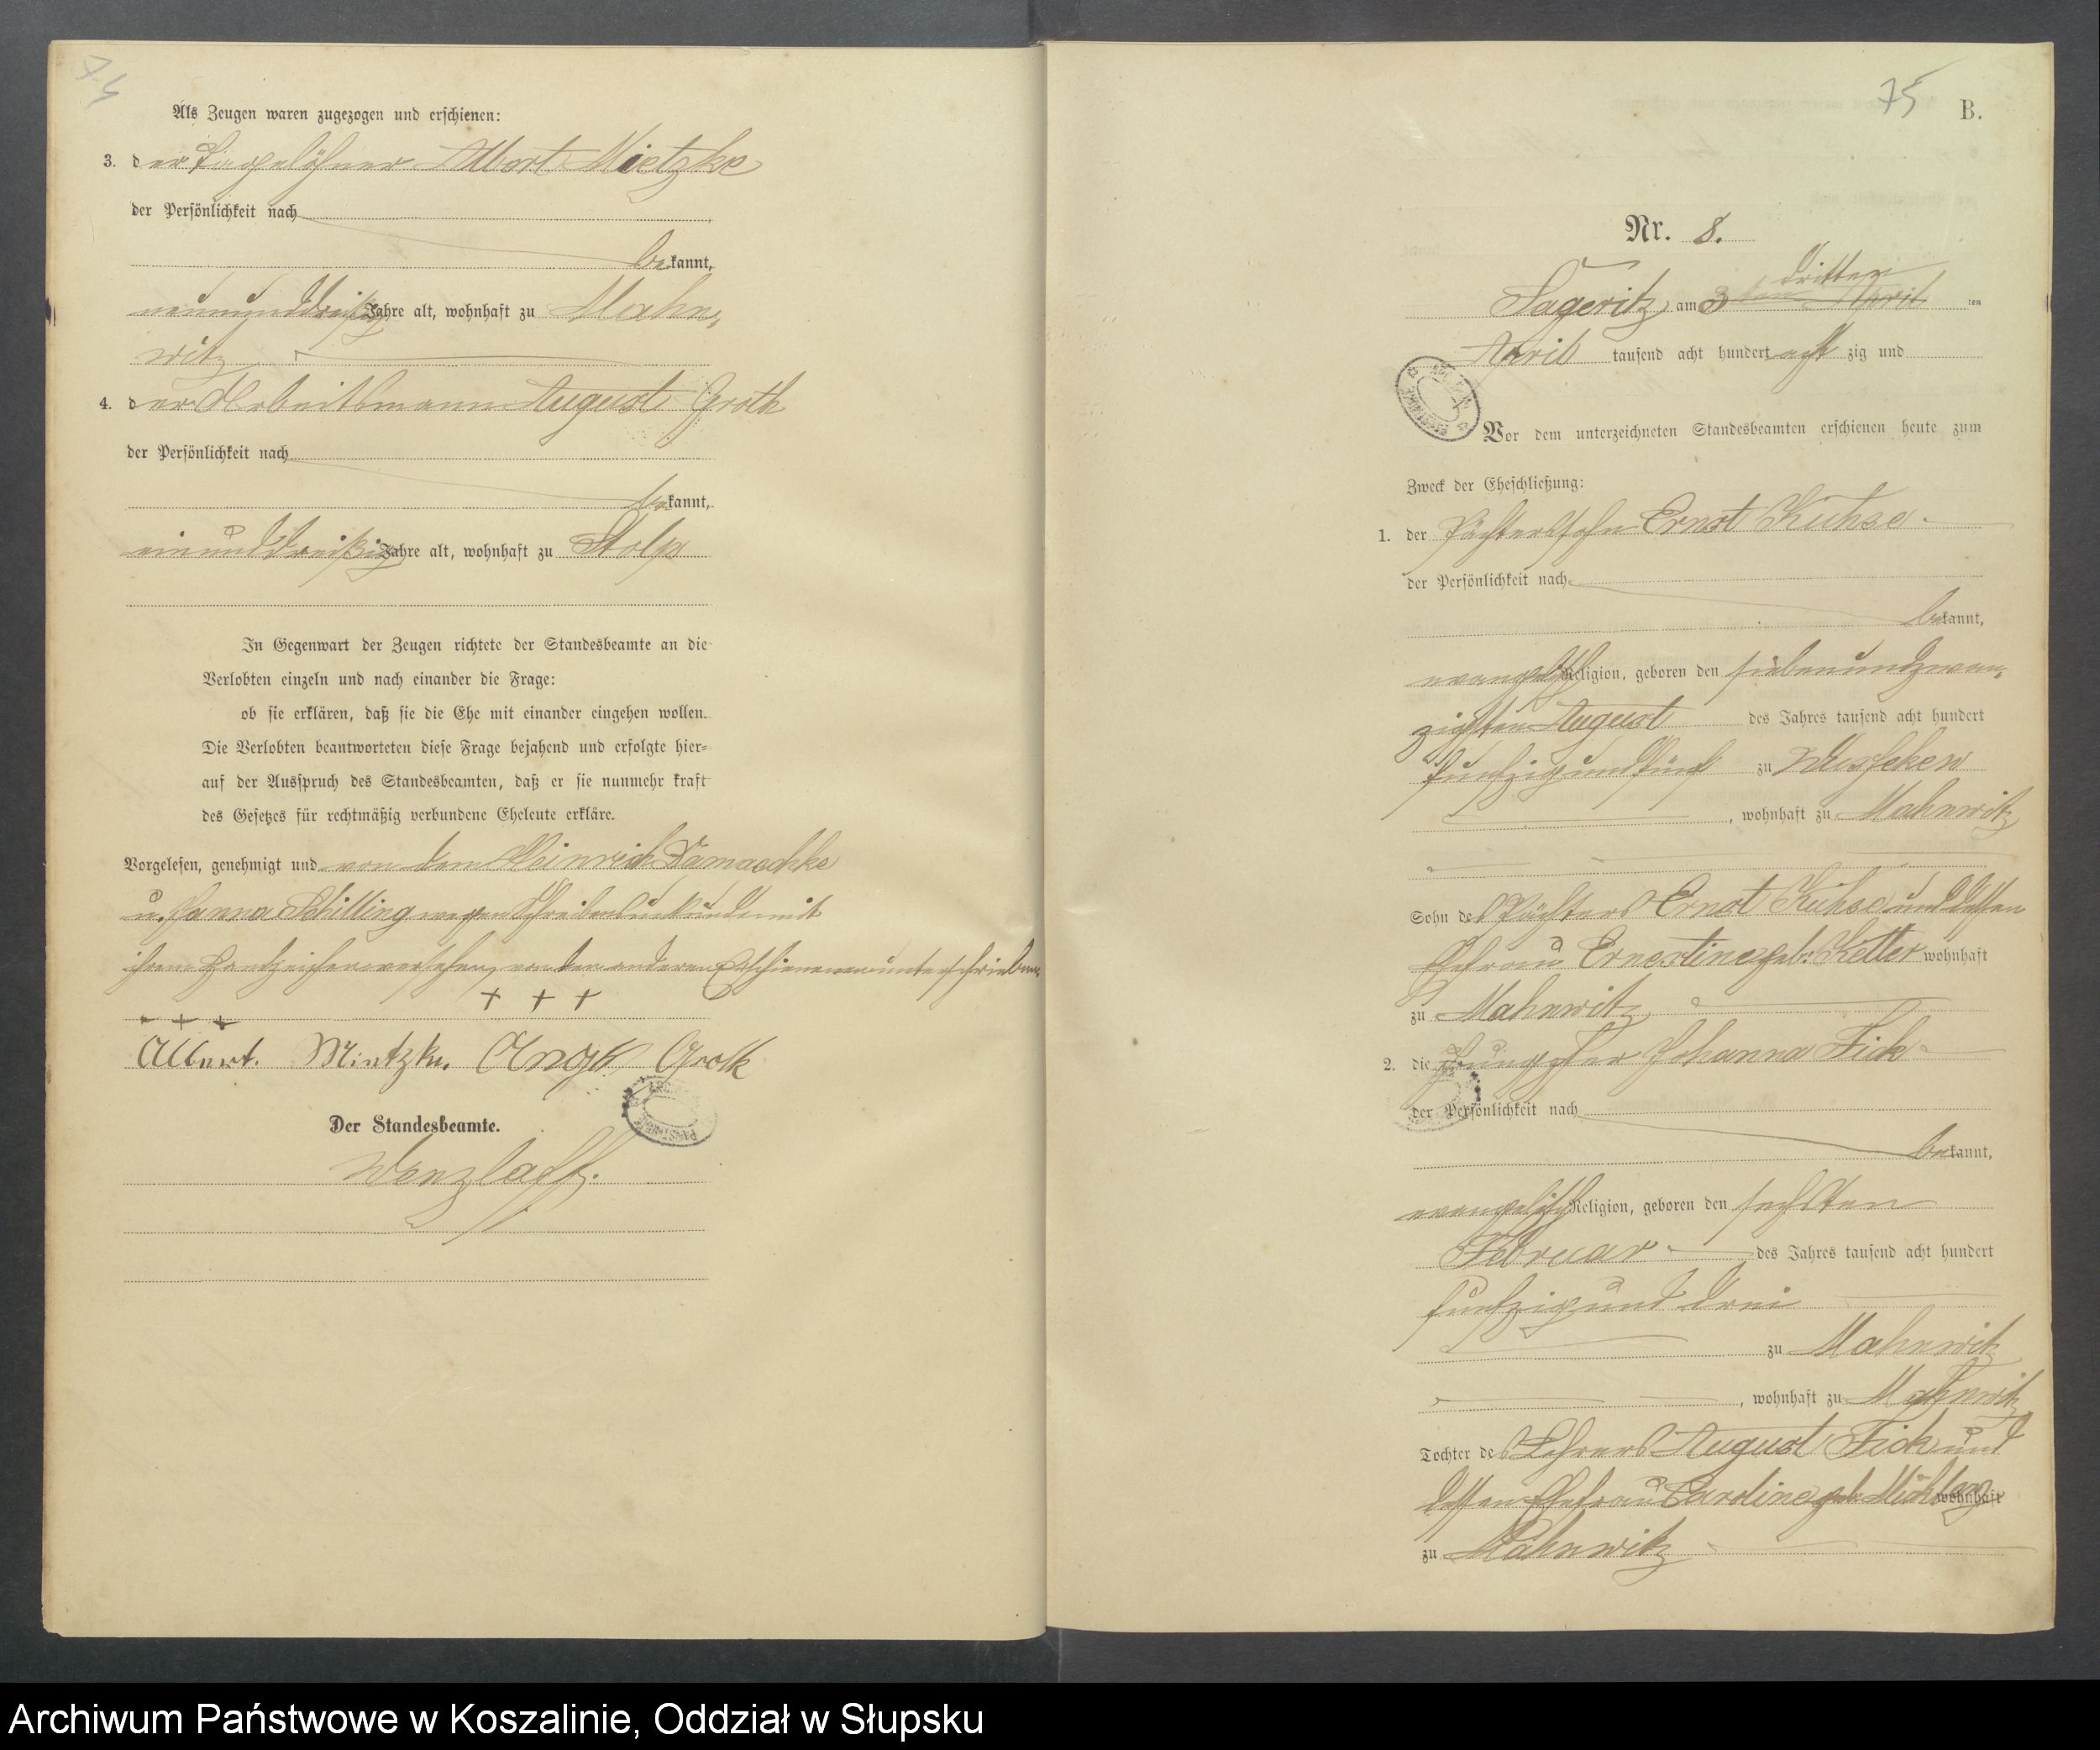 74
Als Zeugen waren zugezogen und erschienen:
3. der Tagelöhner Albert Mietzke
der Persönlichkeit nach
bekannt,
neununddreißig Jahre alt, wohnhaft zu Mahn-
witz
4. der Arbeitsmann August Groth
der Persönlichkeit nach
bekannt,
einunddreißig Jahre alt, wohnhaft zu Stolp
In Gegenwart der Zeugen richtete der Standesbeamte an die
Verlobten einzeln und nach einander die Frage:
ob sie erklären, daß sie die Ehe mit einander eingehen wollen.
Die Verlobten beantworteten diese Frage bejahend und erfolgte hier-
auf der Ausspruch des Standesbeamten, daß er sie nunmehr kraft
des Gesetzes für rechtmäßig verbundene Eheleute erkläre.
Vorgelesen, genehmigt und von dem Heinrich Damaschke
u. Hanna Schilling wegen Schreibensunkunde mit
ihrem Handzeichen versehen, von den anderen Erschienenen unterschrieben.
+ + +
+ + +
Albert. Mietzke. August Groth
Der Standesbeamte.
Wenzlaff.
75
B.
Nr. 8.
dritten
Sageritz am 3ten April ten
April tausend acht hundert acht zig und
Vor dem unterzeichneten Standesbeamten erschienen heute zum
Zweck der Eheschließung:
1. der Pächterssohn Ernst Kuhse
der Persönlichkeit nach
bekannt,
evangelisch Religion, geboren den siebenundzwan-
zigsten August des Jahres tausend acht hundert
funfzig und fünf zu Wusseken
, wohnhaft zu Mahnwitz
Sohn des Pächters Ernst Kuhse und dessen
Ehefrau Ernestine geb: Ketter wohnhaft
zu Mahnwitz
2. die Jungfer Johanna Fick
der Persönlichkeit nach
bekannt,
evangelisch Religion, geboren den sechsten
Februar des Jahres tausend acht hundert
funfzig und drei
zu Mahnwitz
, wohnhaft zu Mahnwitz
Tochter des Lehrers August Fick und
dessen Ehefrau Caroline geb: wohnhaft
zu Mahnwitz
Archiwum Państwowe w Koszalinie, Oddział w Słupsku